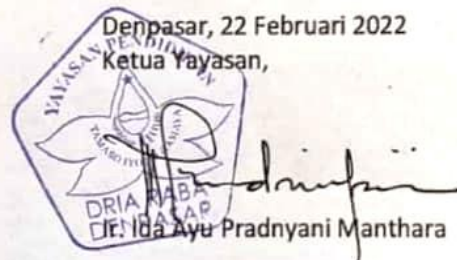 Denpasar, 22 Februari 2022
Ketua Yayasan,
YAYASAN PENDIDIKAN
DRIA RABA
DENPASAR
Ir. Ida Ayu Pradnyani Manthara